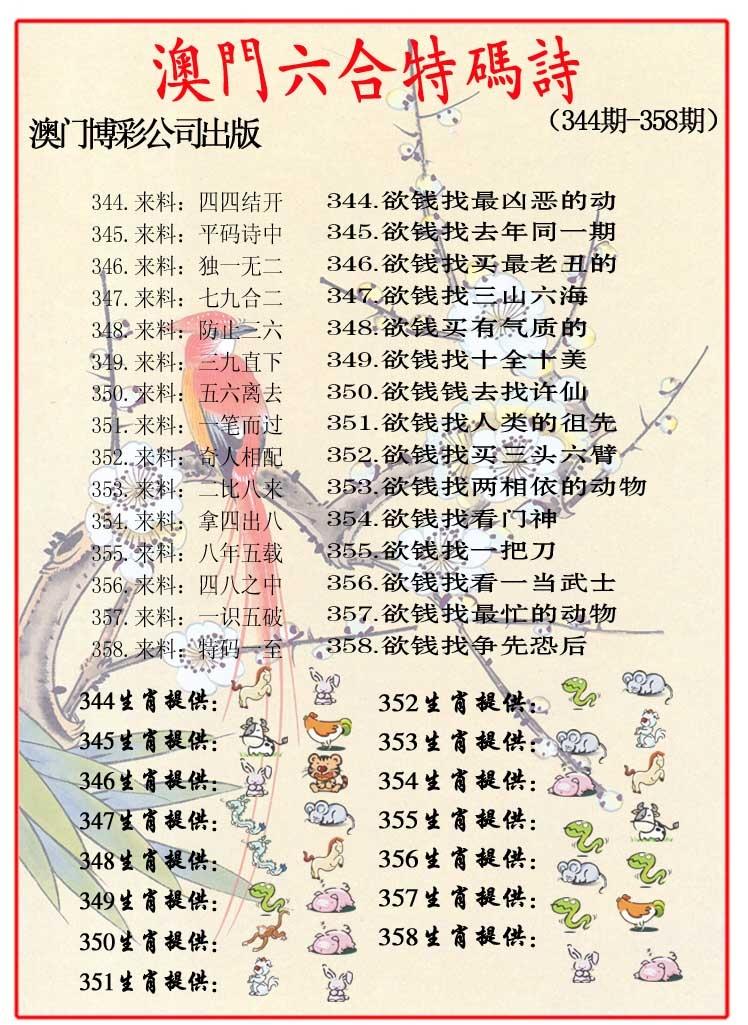 澳門六合特碼詩
澳门博彩公司出版
（344期-358期）
344.来料：四四结开 344.欲钱找最凶恶的动
345.来料：平码诗中 345.欲钱找去年同一期
346.来料：独一无二 346.欲钱找买最老丑的
347.来料：七九合二 347.欲钱找三山六海
348.来料：防止三六 348.欲钱买有气质的
349.来料：三九直下 349.欲钱找十全十美
350.来料：五六离去 350.欲钱钱去找许仙
351.来料：一笔而过 351.欲钱找人类的祖先
352.来料：奇人相配 352.欲钱找买三头六臂
353.来料：二比八来 353.欲钱找两相依的动物
354.来料：拿四出八 354.欲钱找看门神
355.来料：八年五载 355.欲钱找一把刀
356.来料：四八之中 356.欲钱找看一当武士
357.来料：一识五破 357.欲钱找最忙的动物
358.来料：特码一至 358.欲钱找争先恐后
344生肖提供： 352生肖提供：
345生肖提供： 353生肖提供：
346生肖提供： 354生肖提供：
347生肖提供： 355生肖提供：
348生肖提供： 356生肖提供：
349生肖提供： 357生肖提供：
350生肖提供： 358生肖提供：
351生肖提供：